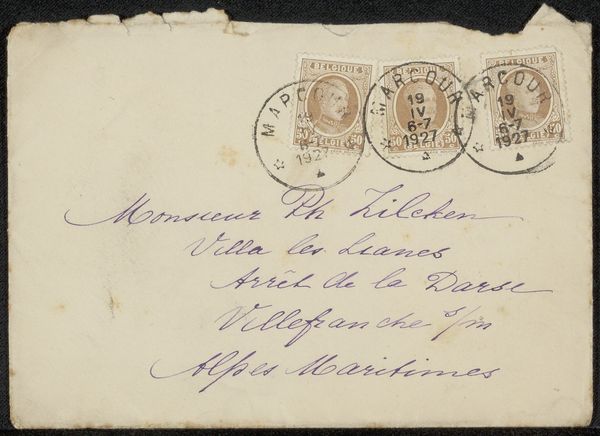 BELGIQUE
50 BELGIË 50
MARCOUR
19
IV
6-7
1927
BELGIQUE
50 BELGIË 50
MARCOUR
19
IV
6-7
1927
BELGIQUE
BELGIË 50
MARCOUR
19
IV
6-7
1927
Monsieur Ph Zilcken
Villa les Lianes
Arrêt de la Darse
Villefranche s/m
Alpes Maritimes